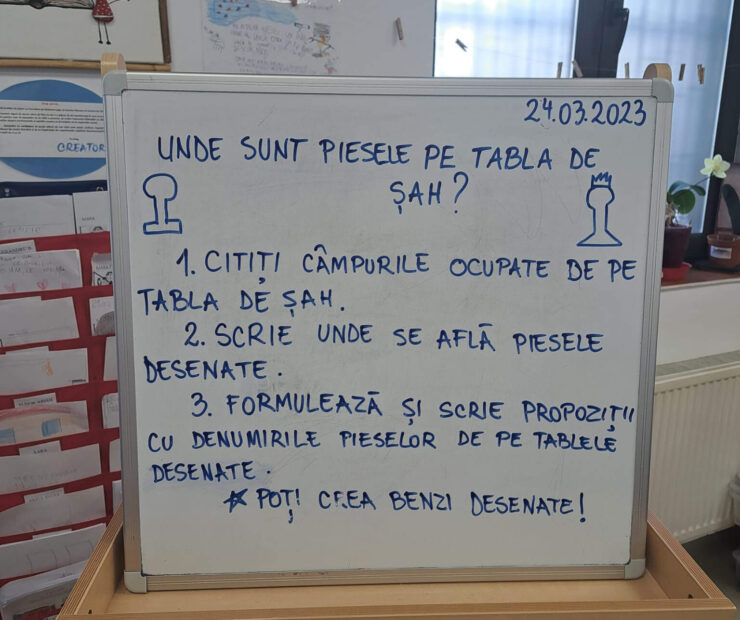 24.03.2023
UNDE SUNT PIESELE PE TABLA DE
ȘAH?
1. CITIȚI CÂMPURILE OCUPATE DE PE
TABLA DE ȘAH.
2. SCRIE UNDE SE AFLĂ PIESELE
DESENATE.
3. FORMULEAZĂ ȘI SCRIE PROPOZIȚII
CU DENUMIRILE PIESELOR DE PE TABLELE
DESENATE.
POȚI CREA BENZI DESENATE!
CREATOR